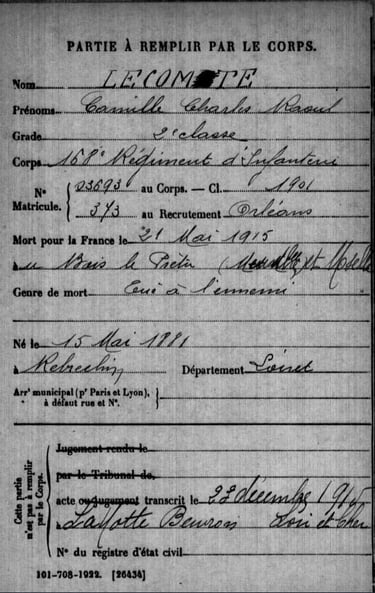 PARTIE À REMPLIR PAR LE CORPS.
Nom LECOMTE
Prénoms Camille Charles Raoul
Grade 2e classe
Corps 168e Régiment d'Infanterie
N° Matricule. { 03693 au Corps. — Cl. 1901
373 au Recrutement Orléans
Mort pour la France le 21 Mai 1915
à u Bois le Prêtre (Meurthe et Moselle
Genre de mort Tué à l'ennemi
Né le 15 Mai 1881
à Rebréchien Département Loiret
Arrt municipal (pr Paris et Lyon), à défaut rue et N°.
Cette partie n'est pas à remplir par le Corps.
Jugement rendu le
par le Tribunal de
acte ou jugement transcrit le 23 décembre 1915
à La Motte Beuvron Loir et Cher
N° du registre d'état civil
101-708-1922. [26434]